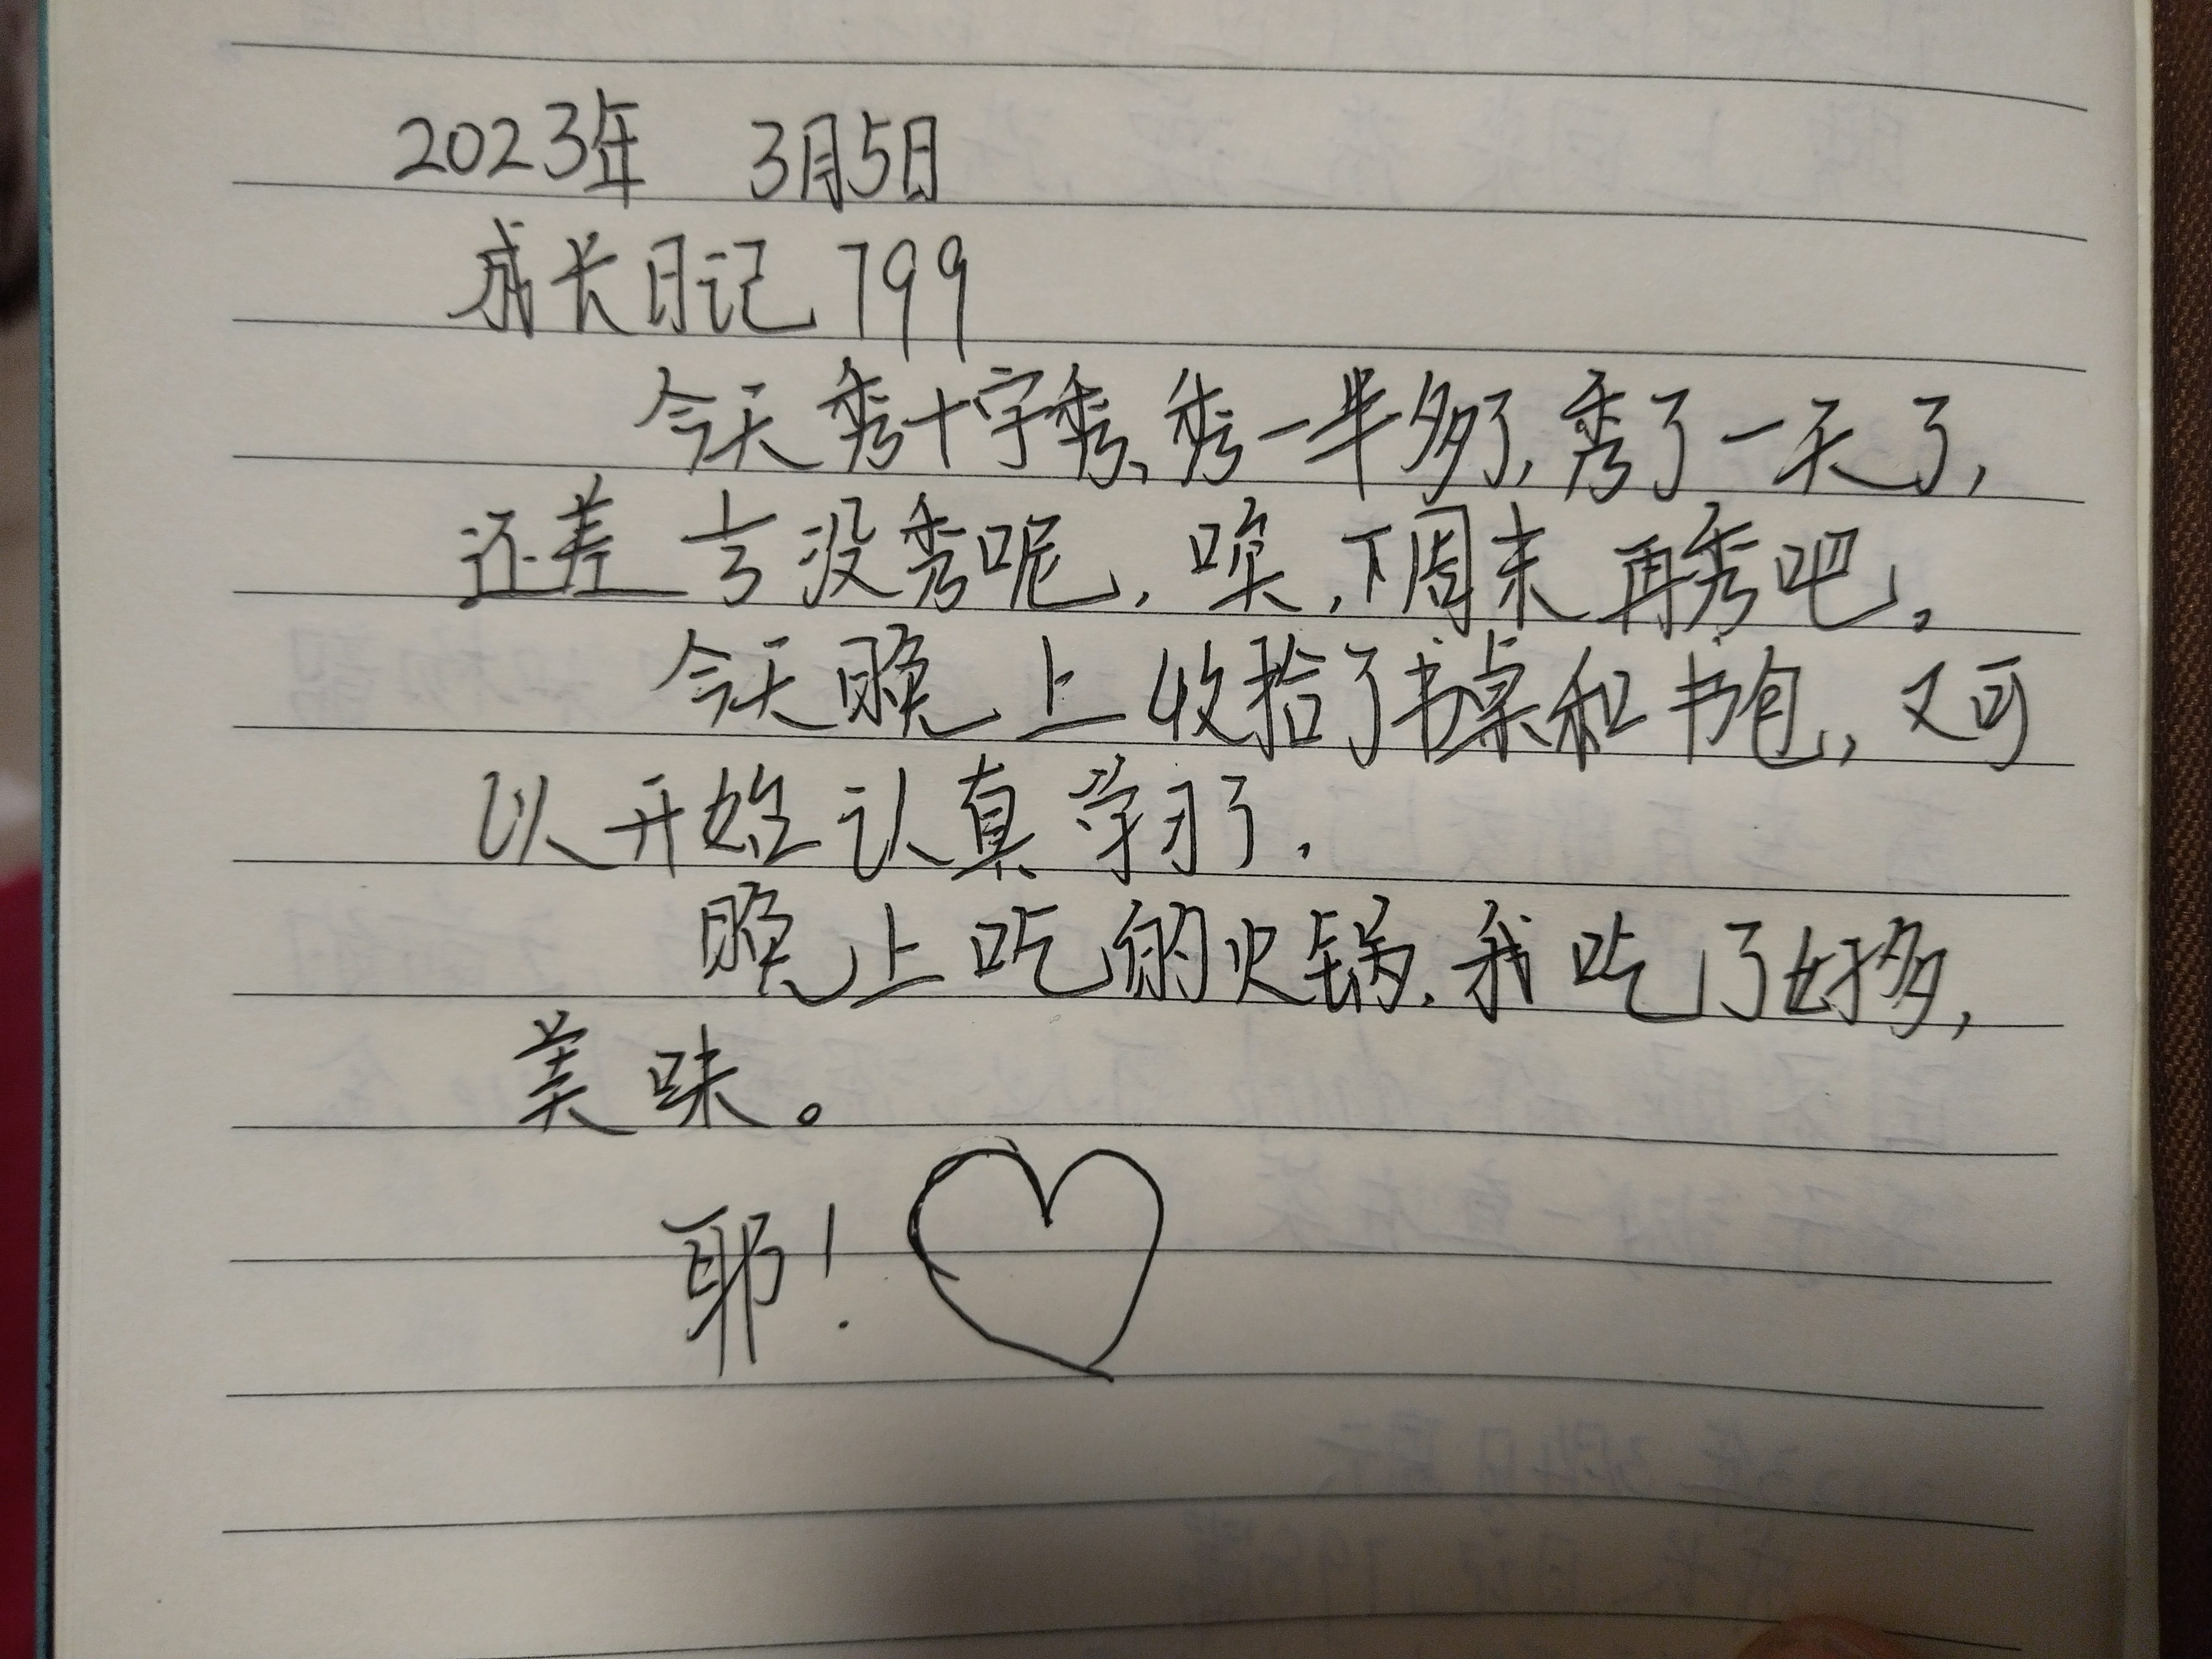 2023年 3月5日
成长日记 799
今天秀十字秀,秀一半多了,秀了一天了,
还差 1/3 没秀呢,唉,下周末再秀吧。
今天晚上收拾了书桌和书包,又可
以开始认真学习了.
晚上吃的火锅.我吃了好多,
美味。
耶!